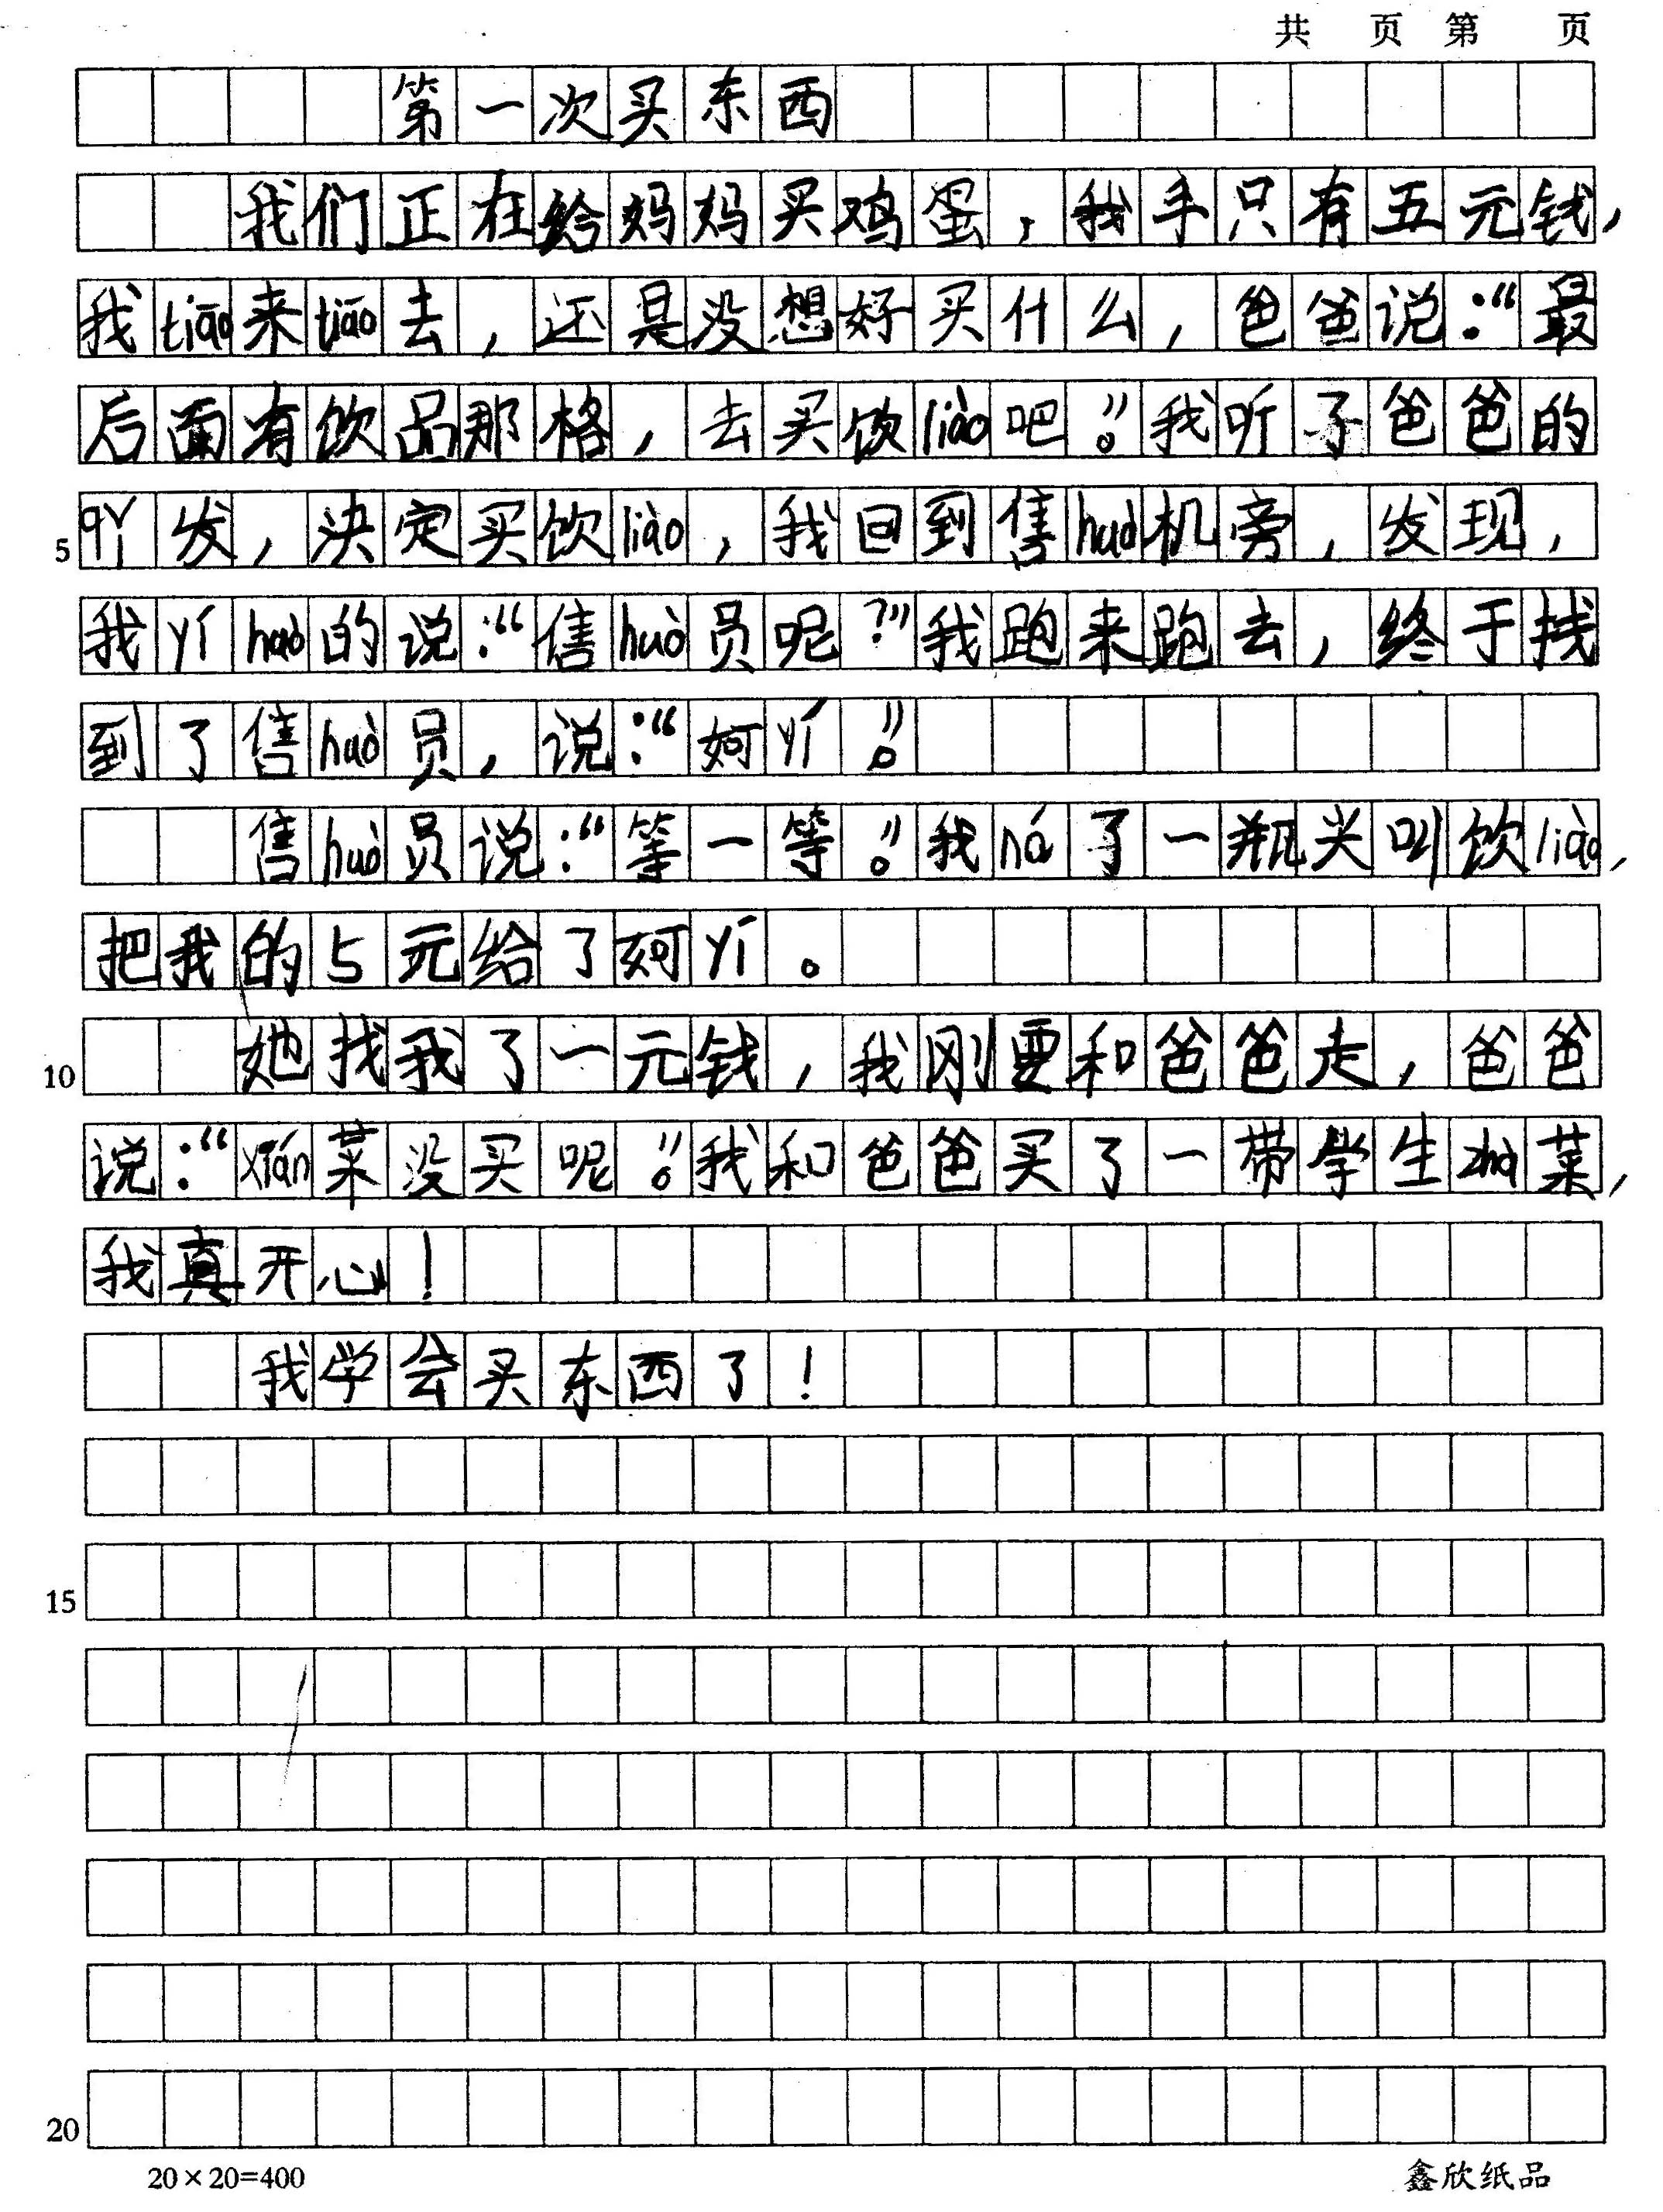 共 页 第 页
第一次买东西
我们正在给妈妈买鸡蛋，我手只有五元钱，
我tiāo来tiāo去，还是没想好买什么，爸爸说：“最
后面有饮品那格，去买饮liào吧。”我听了爸爸的
发，决定买饮liào，我回到售huò机旁，发现，
5
我yí huò的说：“售huò员呢？”我跑来跑去，终于找
到了售huò员，说：“妸yí。”
售huò员说：“等一等。”我ná了一瓶尖叫饮liào，
把我的5元给了妸yí。
她找我了一元钱，我刚要和爸爸走，爸爸
10
说：“xián菜没买呢。”我和爸爸买了一带学生zhà菜，
我真开心！
我学会买东西了！
15
20
20×20=400 鑫欣纸品